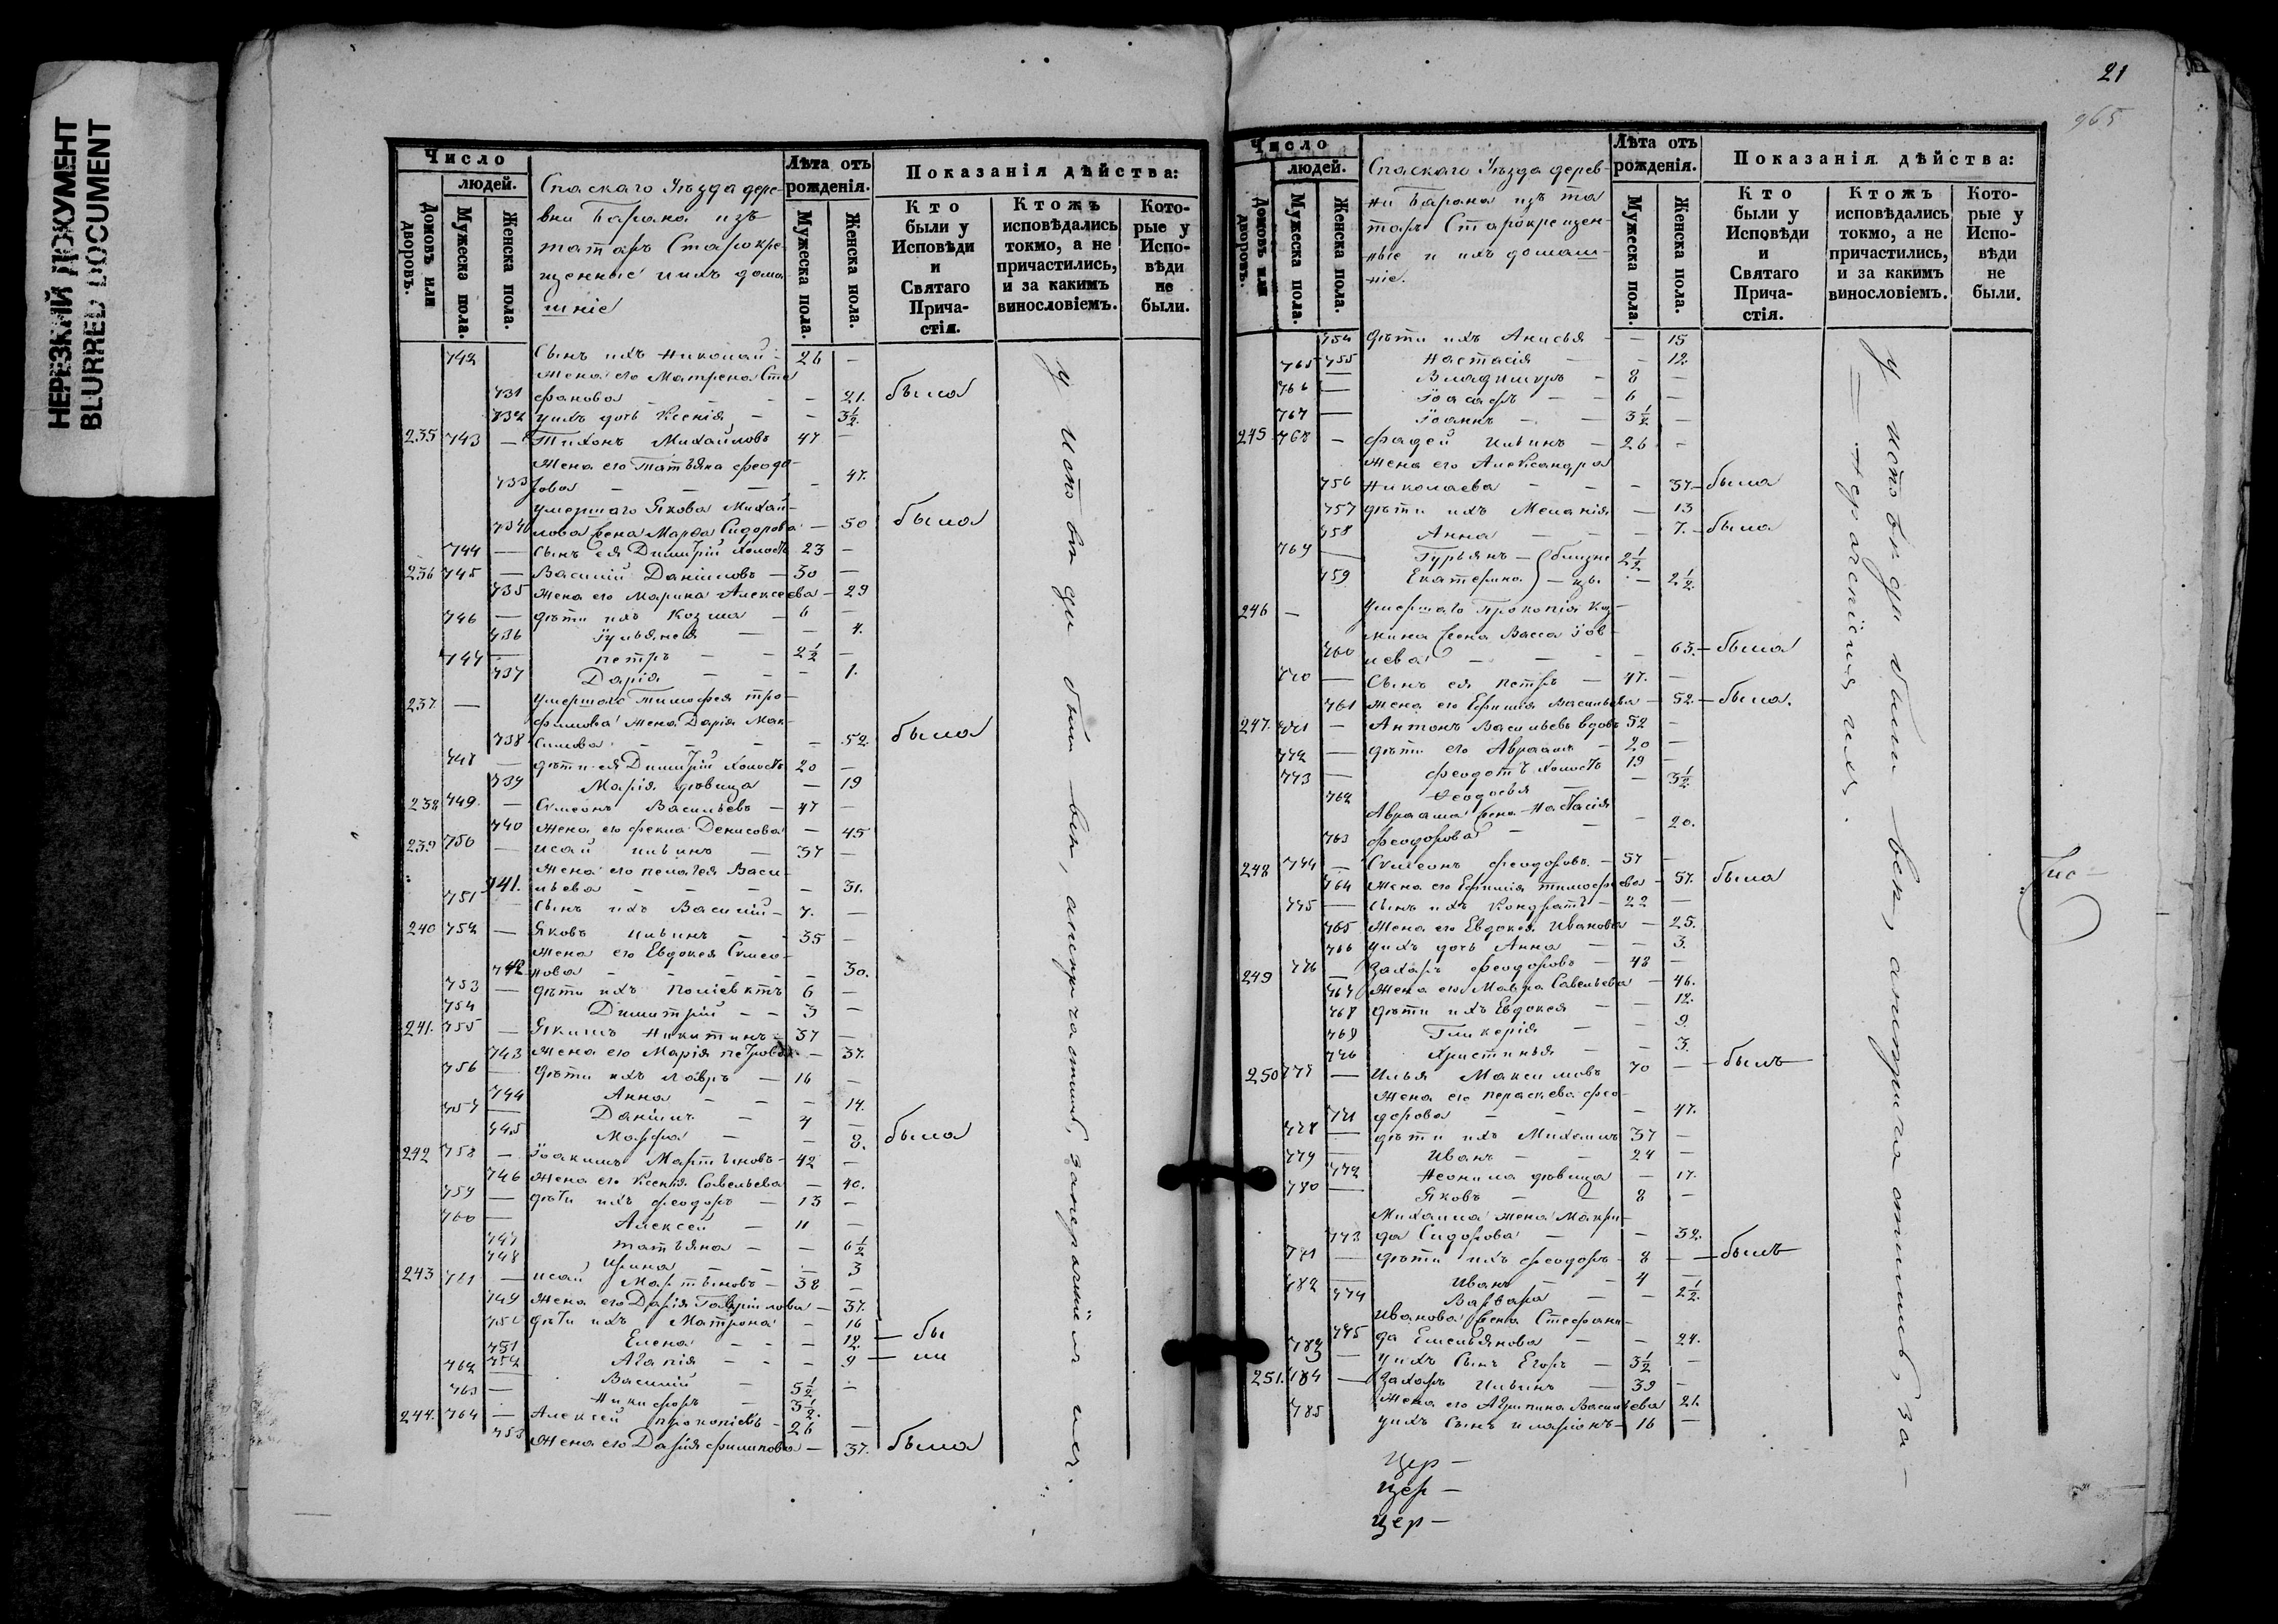 НЕРЕЗКИЙ ДОКУМЕНТ
BLURRED DOCUMENT
Число
людей.
Домовъ или дворовъ.
Мужеска пола.
Женска пола.
Спаскаго Уѣзда дере-
вни Барана изъ
татаръ Старокре-
щенные и ихъ дома
шніе
Лѣта отъ рожденія.
Мужеска пола.
Женска пола.
Показанія дѣйства:
Кто были у Исповѣди и Святаго Прича-стія.
Ктожъ исповѣдались токмо, а не причастились, и за какимъ винословіемъ.
Кото-рые у Испо-вѣди не были.
742 Сынъ ихъ Николай - 26 -
Жена его Матрена Сте
731 фанова - - - 21. была
732 у ихъ дочь Ксенія - - 3½
235 743 - Тихонъ Михайловъ 47 -
Жена его Татьяна Феодо-
733 рова - - - 47.
умершаго Якова Михай-
734 лова жена Марѳа Сидорова - 50 была
744 - Сынъ ея Димитрій холостъ 23 -
236 745 - Василій Даніиловъ - 30 -
735 Жена его Марина Алексеева - 29
746 - дѣти ихъ Козма - 6 -
736 Іульянея - - 4.
747 - Петръ - - 2½ -
737 Дарія - - - 1.
237 - умершаго Тимофея Тро-
фимова жена Дарія Мак-
738 симова - - - - 52. была
748 - дѣти ея Димитрій холостъ 20 -
739 Марія дѣвица - 19
238 749. - Симеонъ Васильевъ - 47 -
740 Жена его Фекла Денисова - 45
239 750 - Исай Ильинъ - 37 -
Жена его Пелагея Васи-
741. льева - - - - 31.
751 Сынъ ихъ Василій - 7. -
240 752 - Яковъ Ильинъ - - 35 -
Жена его Евдокея Симео-
742 нова - - - - - 30.
753 - дѣти ихъ Поліевктъ 6 -
754 Димитрій - - 3 -
241. 755 - Якимъ Никитинъ - 37 -
743 Жена его Марія Петрова - 37.
756 - дѣти ихъ Лавръ - 16 -
744 Анна - - - 14.
757 - Даніилъ - 4 -
745 Марфа - - 8. была
242 758 - Іоакимъ Мартыновъ - 42 -
746 Жена его Ксенія Савельева - 40.
759 - дѣти ихъ Феодоръ - 13 -
760 - Алексей - 11 -
747 Татьяна - - 6½
748 Ирина - - - 3
243 761 - Исай Мартыновъ - 38 -
749 Жена его Дарія Гавріилова - 37.
750 дѣти ихъ Матрона - 16
751 Елена - - - 12. - бы
752 Агапія - - - 9 - ли
762 - Василій - 5½ -
763 - Никифоръ - 3½.
244. 764 - Алексей Прокопіевъ - 26 -
753 Жена его Дарія Филипова - 37. была
у исповеди были все, а непричастились, за нераченіемъ ихъ.
21
965
Число
людей.
Домовъ или дворовъ.
Мужеска пола.
Женска пола.
Спаскаго Уѣзда дерев-
ни Барана изъ та
таръ Старокрещен-
ные и ихъ домаш-
ніе.
Лѣта отъ рожденія.
Мужеска пола.
Женска пола.
Показанія дѣйства:
Кто были у Исповѣди и Святаго Прича-стія.
Ктожъ исповѣдались токмо, а не причастились, и за какимъ винословіемъ.
Кото-рые у Испо-вѣди не были.
754 дѣти ихъ Анисья - - 15
755 Настасія - - 12.
765 - Владимиръ - 8 -
766 - Іоасафъ - - 6 -
767 - Іоаннъ - - 3½ -
245 768 - Фадей Ильинъ - 26 -
Жена его Александра
756 Николаева - - - 37. - была
757 дѣти ихъ Меланія - 13
758 Анна - - - 7. - была
769 - Гурьянъ - (близне 2½
759 Екатерина) - цы. - 2½.
246 - умершаго Прокопія Коз-
мина жена Васса Іов-
760 лева - - - - 63. - была
770 - Сынъ ея Петръ - 47. -
761 Жена его Ефимія Васильева - 52. - была.
247. 771 - Антонъ Васильевъ вдовъ 52 -
772 - дѣти его Авраамъ - 20 -
773 - Феодотъ холостъ 19 -
762 Ѳеодосья - - 3½
Авраама жена Настасія
763 Феодорова - - - 20.
248 774 - Симеонъ Феодоровъ - 57 -
764 Жена его Ефимія Тимофеева - 57. была
775 - Сынъ ихъ Кондратъ - 22 -
765 Жена его Евдокея Иванова - 25.
766 у ихъ дочь Анна - - 3.
249 776 - Захаръ Феодоровъ - 48 -
767 Жена его Мавра Савельева - 46.
768 дѣти ихъ Евдокея - - 12.
769 Гликерія - - 9.
770 Христинья - - 3.
250 777 - Илья Максимовъ 70 - - былъ
Жена его Параскева Фео-
771 дорова - - - 47.
778 - дѣти ихъ Михаилъ 37 -
779 - Иванъ - - 24 -
772 Неонила дѣвица - 17.
780 - Яковъ - - 8 -
Михаила жена Макри-
773 да Сидорова - - 32.
781 - дѣти ихъ Феодоръ - 8 - - былъ
782 - Иванъ - - 4 -
774 Варвара - - 2½.
Иванова жена Стефани-
775 да Емельянова - - 24.
783 - у ихъ Сынъ Егоръ - 3½ -
251. 784 - Захаръ Ильинъ - 39 -
Жена его Агрипина Васильева 21.
785 у ихъ Сынъ Иларіонъ - 16 -
у исповеди были все, а непричастились, за-
нераченіемъ ихъ.
Цер -
Цер -
Цер -